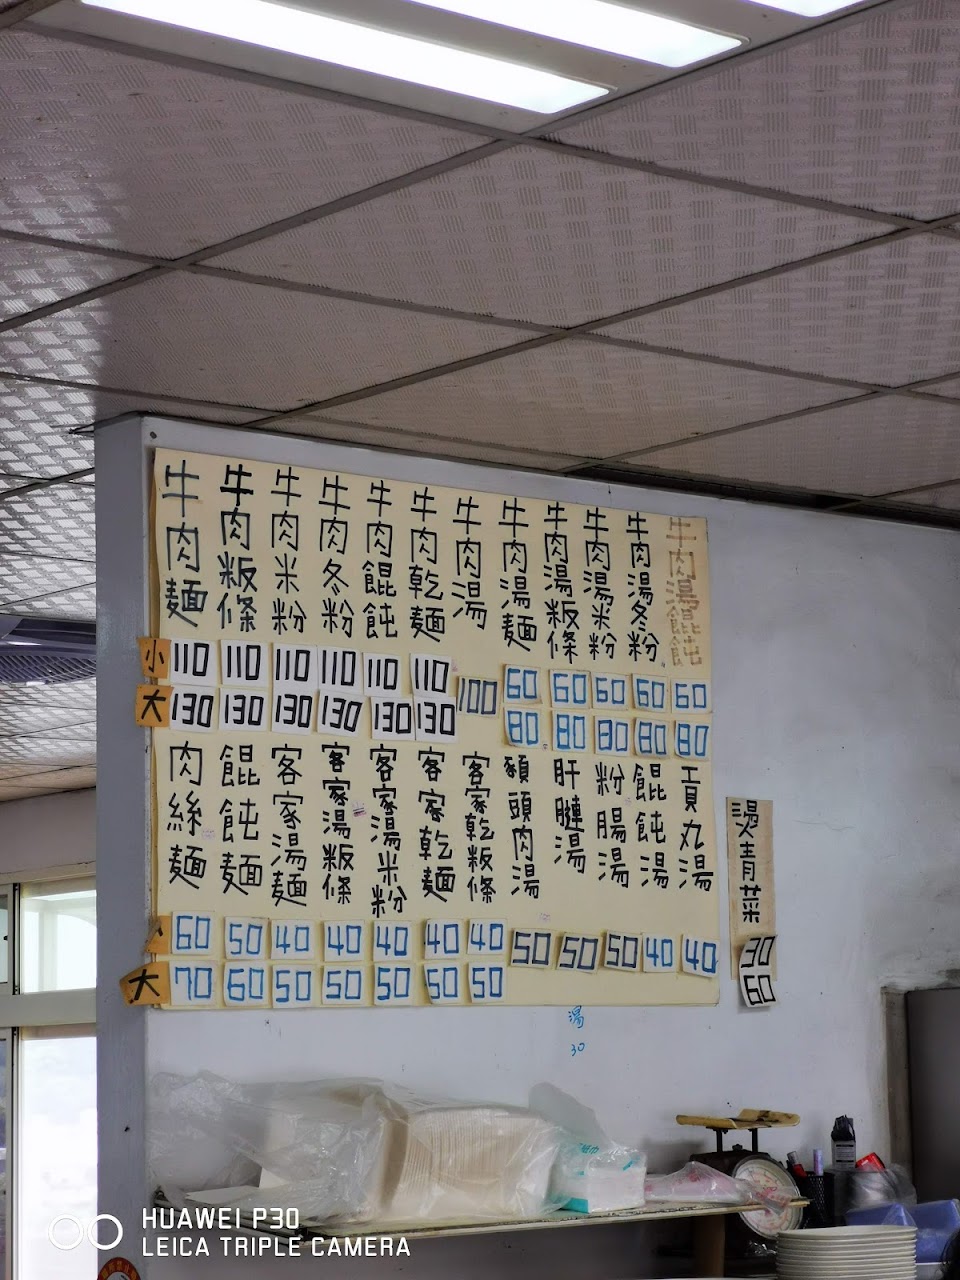 牛肉麵
牛肉粄條
牛肉米粉
牛肉冬粉
牛肉餛飩
牛肉乾麵
牛肉湯
牛肉湯麵
牛肉湯粄條
牛肉湯米粉
牛肉湯冬粉
牛肉湯餛飩
小 110 110 110 110 110 110 100 60 60 60 60 60
大 130 130 130 130 130 130 80 80 80 80 80
肉絲麵
餛飩麵
客家湯麵
客家湯粄條
客家湯米粉
客家乾麵
客家乾粄條
頭肉湯
肝腱湯
粉腸湯
餛飩湯
貢丸湯
小 60 50 40 40 40 40 40 50 50 50 40 40
大 70 60 50 50 50 50 50
燙青菜
30
60
湯
30
HUAWEI P30
LEICA TRIPLE CAMERA